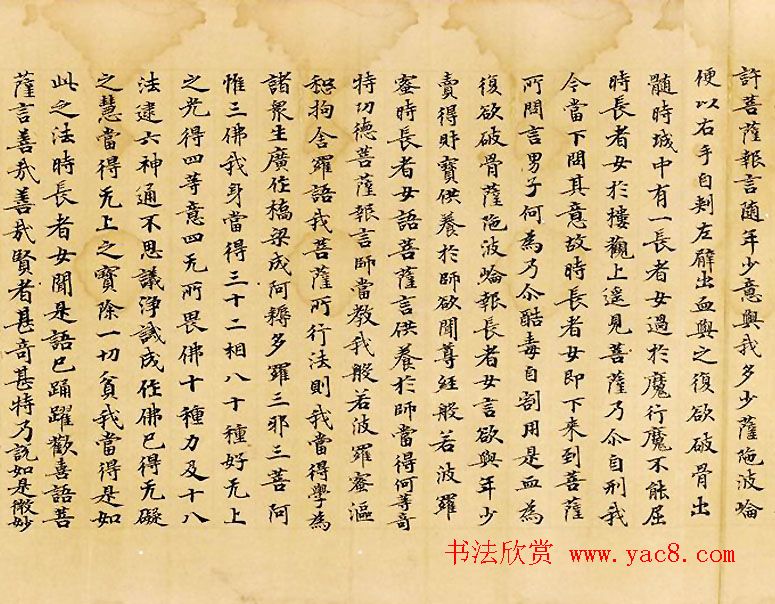 許菩薩報言隨年少意與我多少薩陁波崘
便以右手自刾左臂出血與之復欲破骨出
髓時城中有一長者女過於魔行魔不能屈
時長者女於樓觀上遥見菩薩乃尒自刑我
今當下問其意故時長者女即下来到菩薩
所問言男子何為乃尒酷毒自割用是血為
復欲破骨薩陁波崘報長者女言欲與年少
賣得財寶供養於師欲聞尊經般若波羅
蜜時長者女語菩薩言供養於師當得何等奇
特功德菩薩報言師當教我般若波羅蜜漚
惒拘舍羅語我菩薩所行法則我當得學為
諸衆生廣作橋梁成阿耨多羅三耶三菩阿
惟三佛我身當得三十二相八十種好无上
之光得四等意四无所畏佛十種力及十八
法逮六神通不思議淨誡成作佛已得无礙
之慧當得无上之寶除一切貧我當得是如
此之法時長者女聞是語已踊躍歡喜語菩
薩言善哉善哉賢者甚奇甚特乃說如是微妙
书法欣赏 www.yac8.com